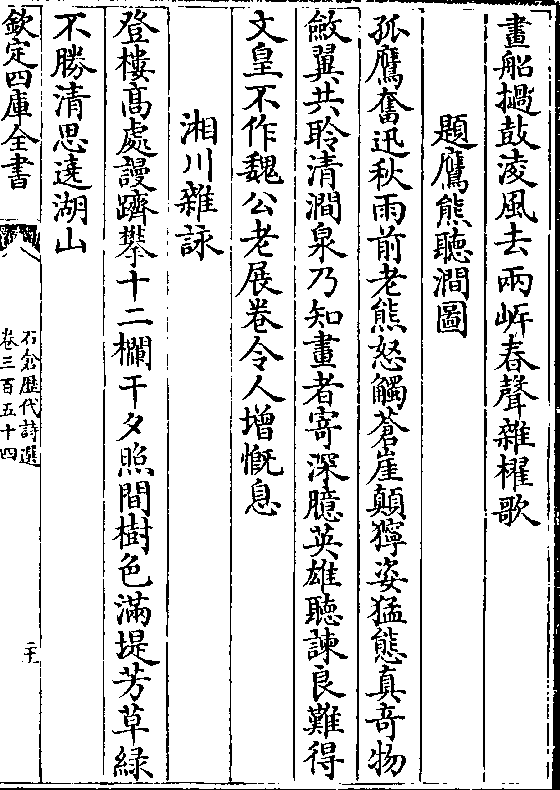 畫船撾鼓凌風去兩岍春聲雜櫂歌
題鷹熊聽澗圖
孤鷹奮迅秋雨前老熊怒觸蒼崖顛獰姿猛態真竒物
斂翼共聆清澗泉乃知畫者寄深臆英雄聽諫良難得
文皇不作魏公老展卷令人增慨息
湘川雜詠
登樓髙處謾躋攀十二欄干夕照間樹色滿堤芳草緑
不勝清思遶湖山
欽定四庫全書
石倉歴代詩選
卷三百五十四
二十